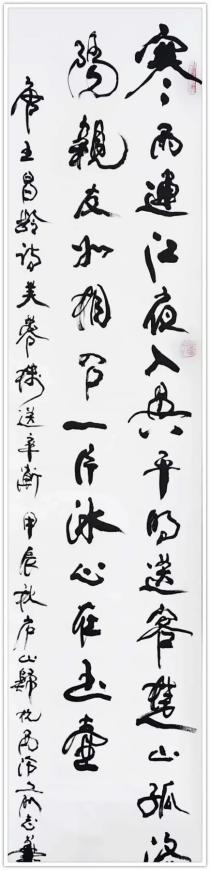 寒雨連江夜入吳平明送客楚山孤洛
陽親友如相問一片冰心在玉壺
唐王昌齡詩芙蓉樓送辛漸甲辰秋庐山歸杭